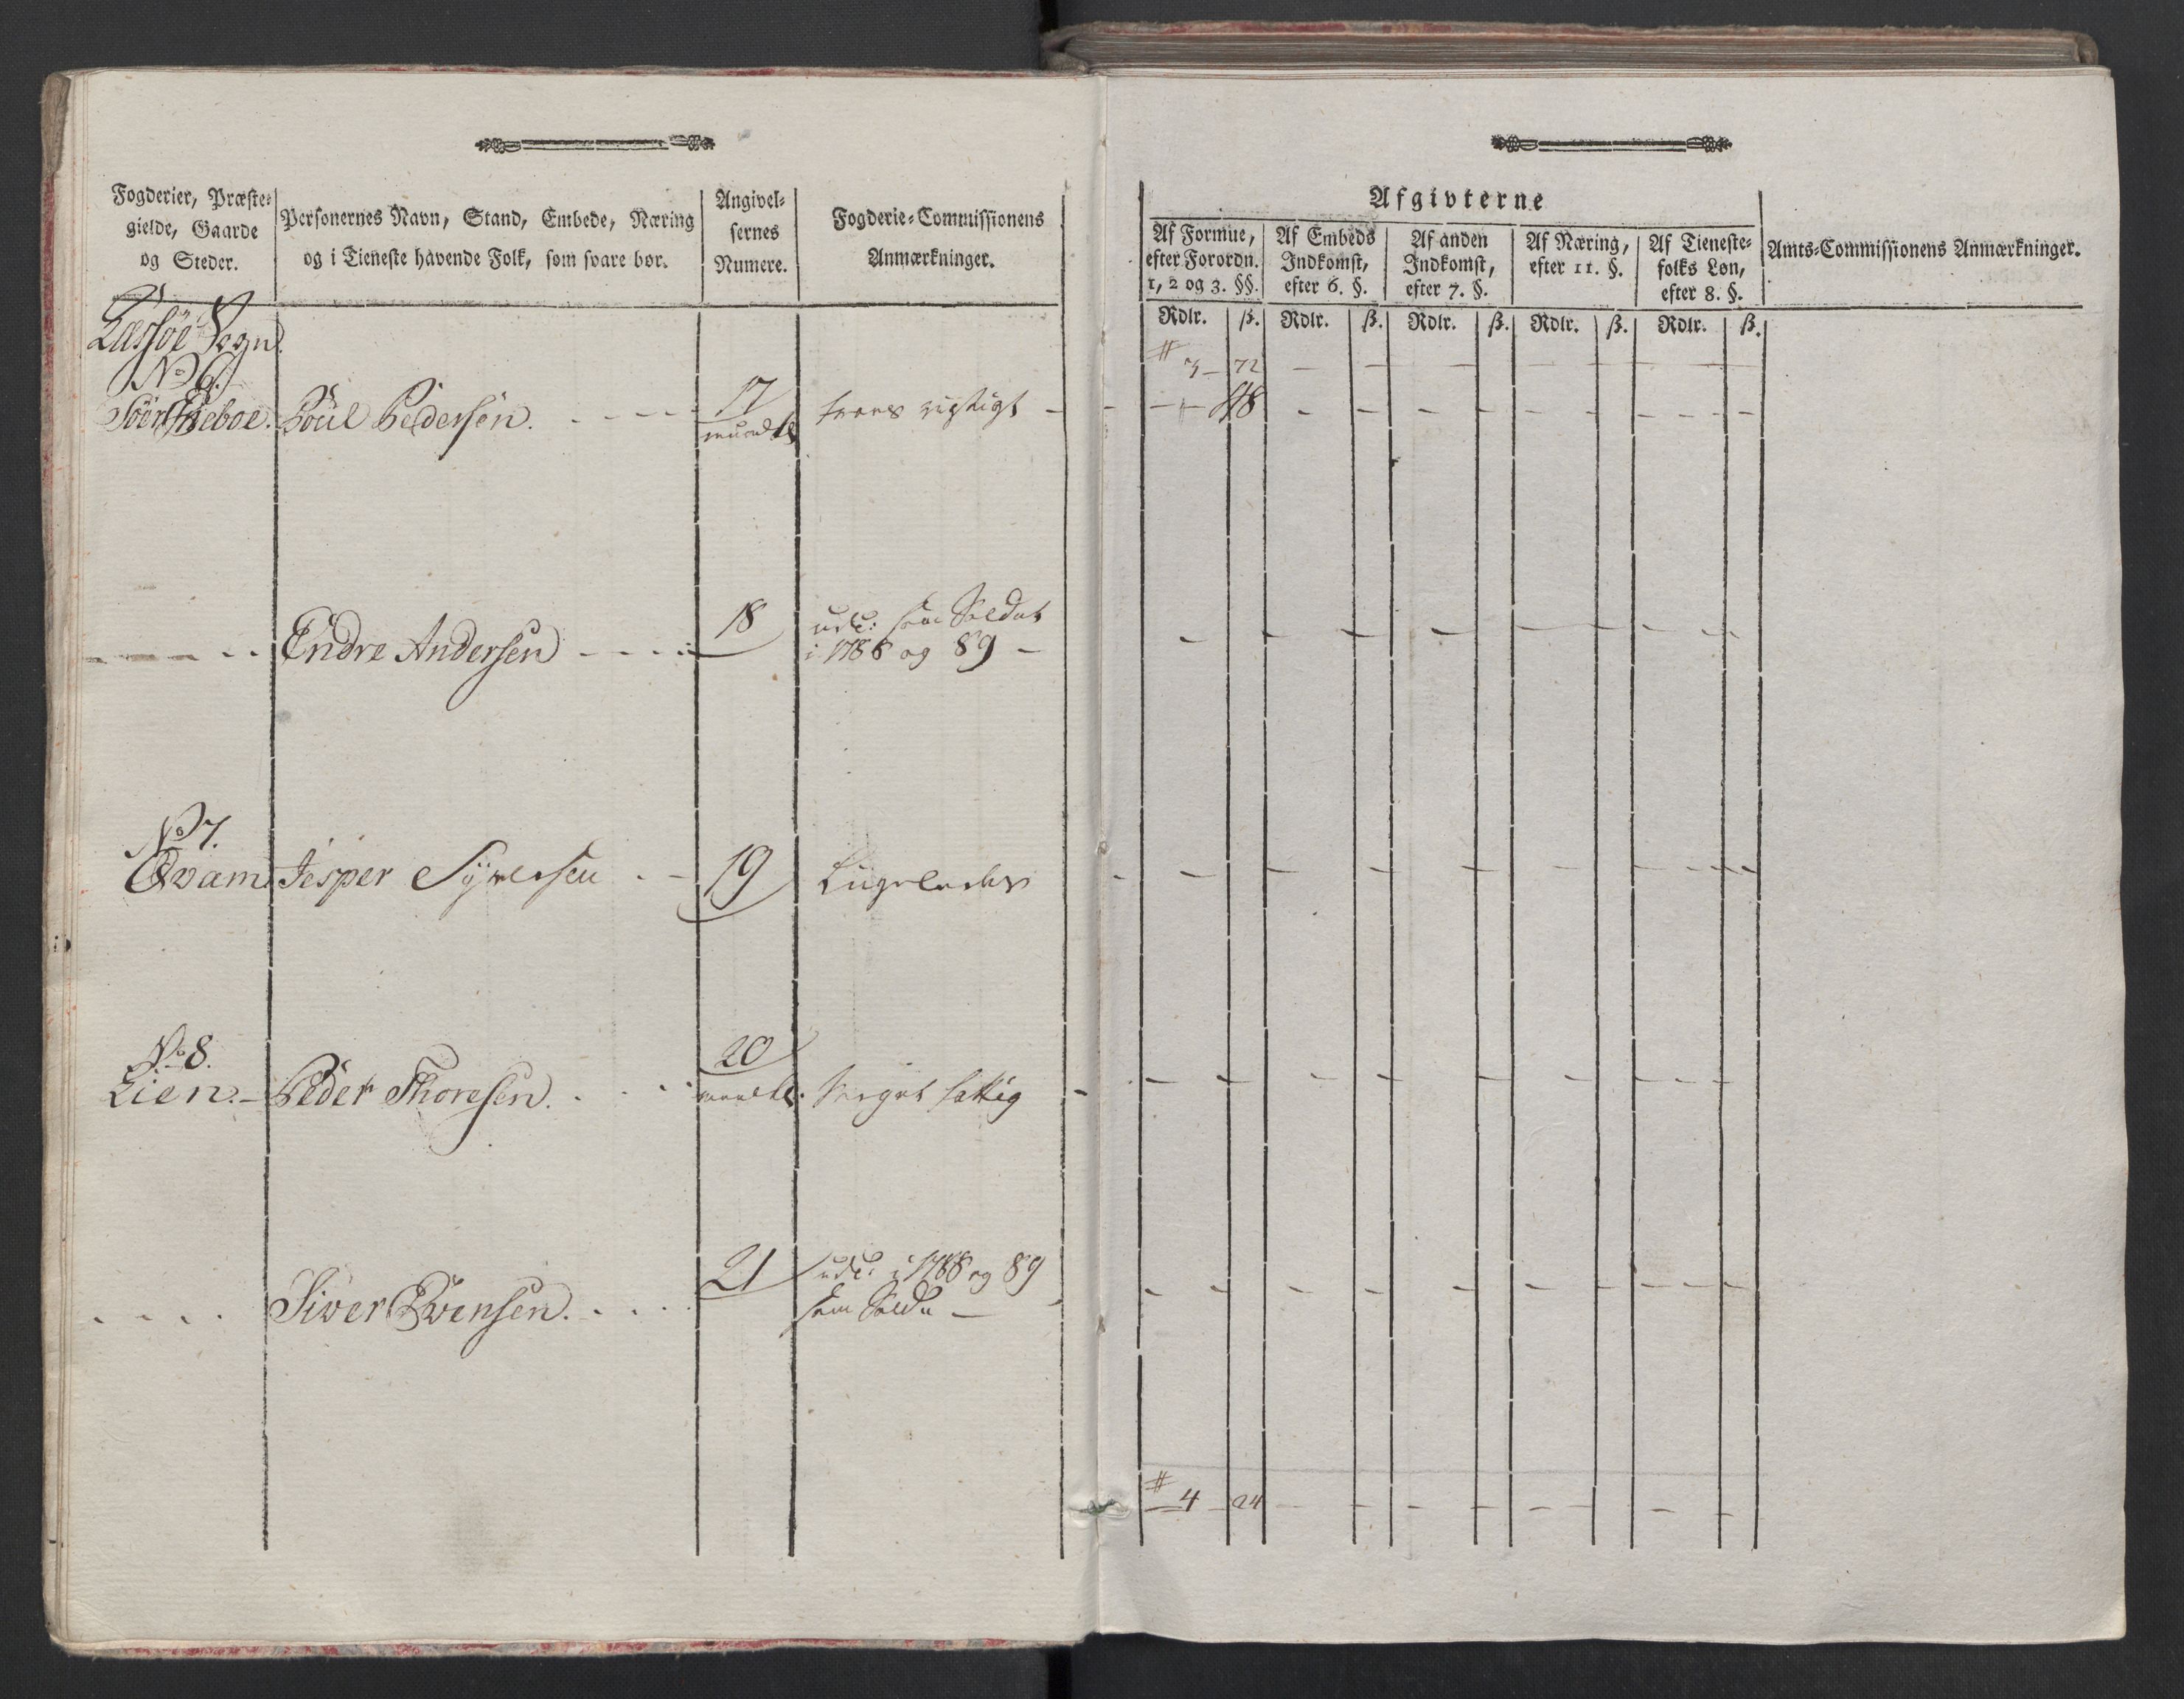 Fogderier, Præste-
gielde, Gaarde
og Steder.
Personernes Navn, Stand, Embede, Næring
og i Tieneste havende Folk, som svare bør.
Angivel-
sernes
Numere.
Fogderie-Commissionens
Anmærkninger.
Afgivterne
Af Formue,
efter Forordn.
1, 2 og 3. §§.
Af Embeds
Indkomst,
efter 6. §.
Af anden
Indkomst,
efter 7. §.
Af Næring,
efter 11. §.
Af Tieneste-
folks Løn,
efter 8. §.
Amts-Commissionens Anmærkninger.
Rdlr. ß. Rdlr. ß. Rdlr. ß. Rdlr. ß. Rdlr. ß.
Sogn.
No 6.
3 - 72
Poül Pedersen. 17 rigtigt - 48
mundtl.
Endre Andersen 18 udc: som Soldat
i 1788 og 89 -
No 7.
Qvam Jesper 19 Ligeledes
No 8.
Lien. - Peder Thoresen. 20 meget fattig
mundtl.
Siver 21 udc: i 1788 og 89
som Solda -
4 - 24